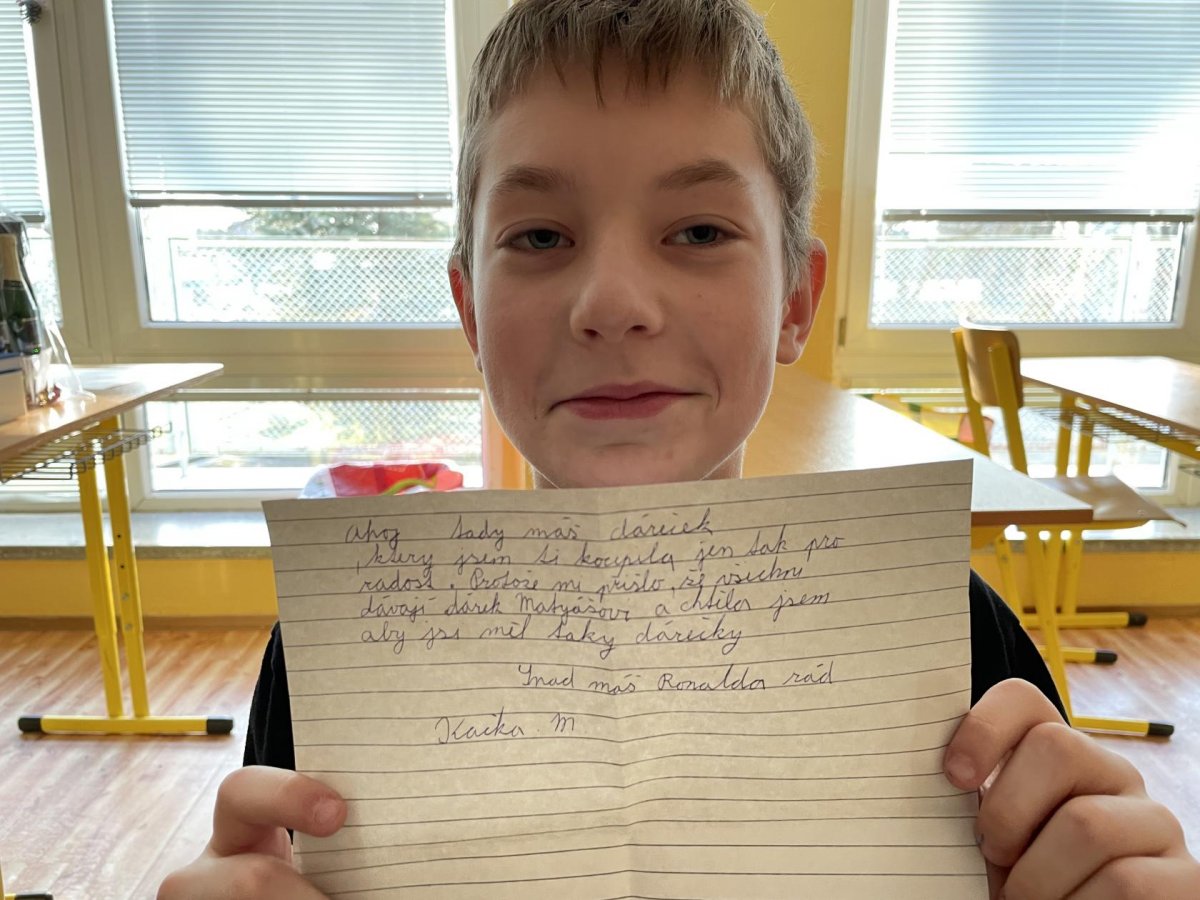 Ahoj tady máš dáreček
, který jsem ti koupila jen tak pro
radost. Protože mi přišlo, že všichni
dávají dárek Matyášovi a chtěla jsem
aby jsi měl taky dárečky
Snad máš Ronalda rád
Kačka. M